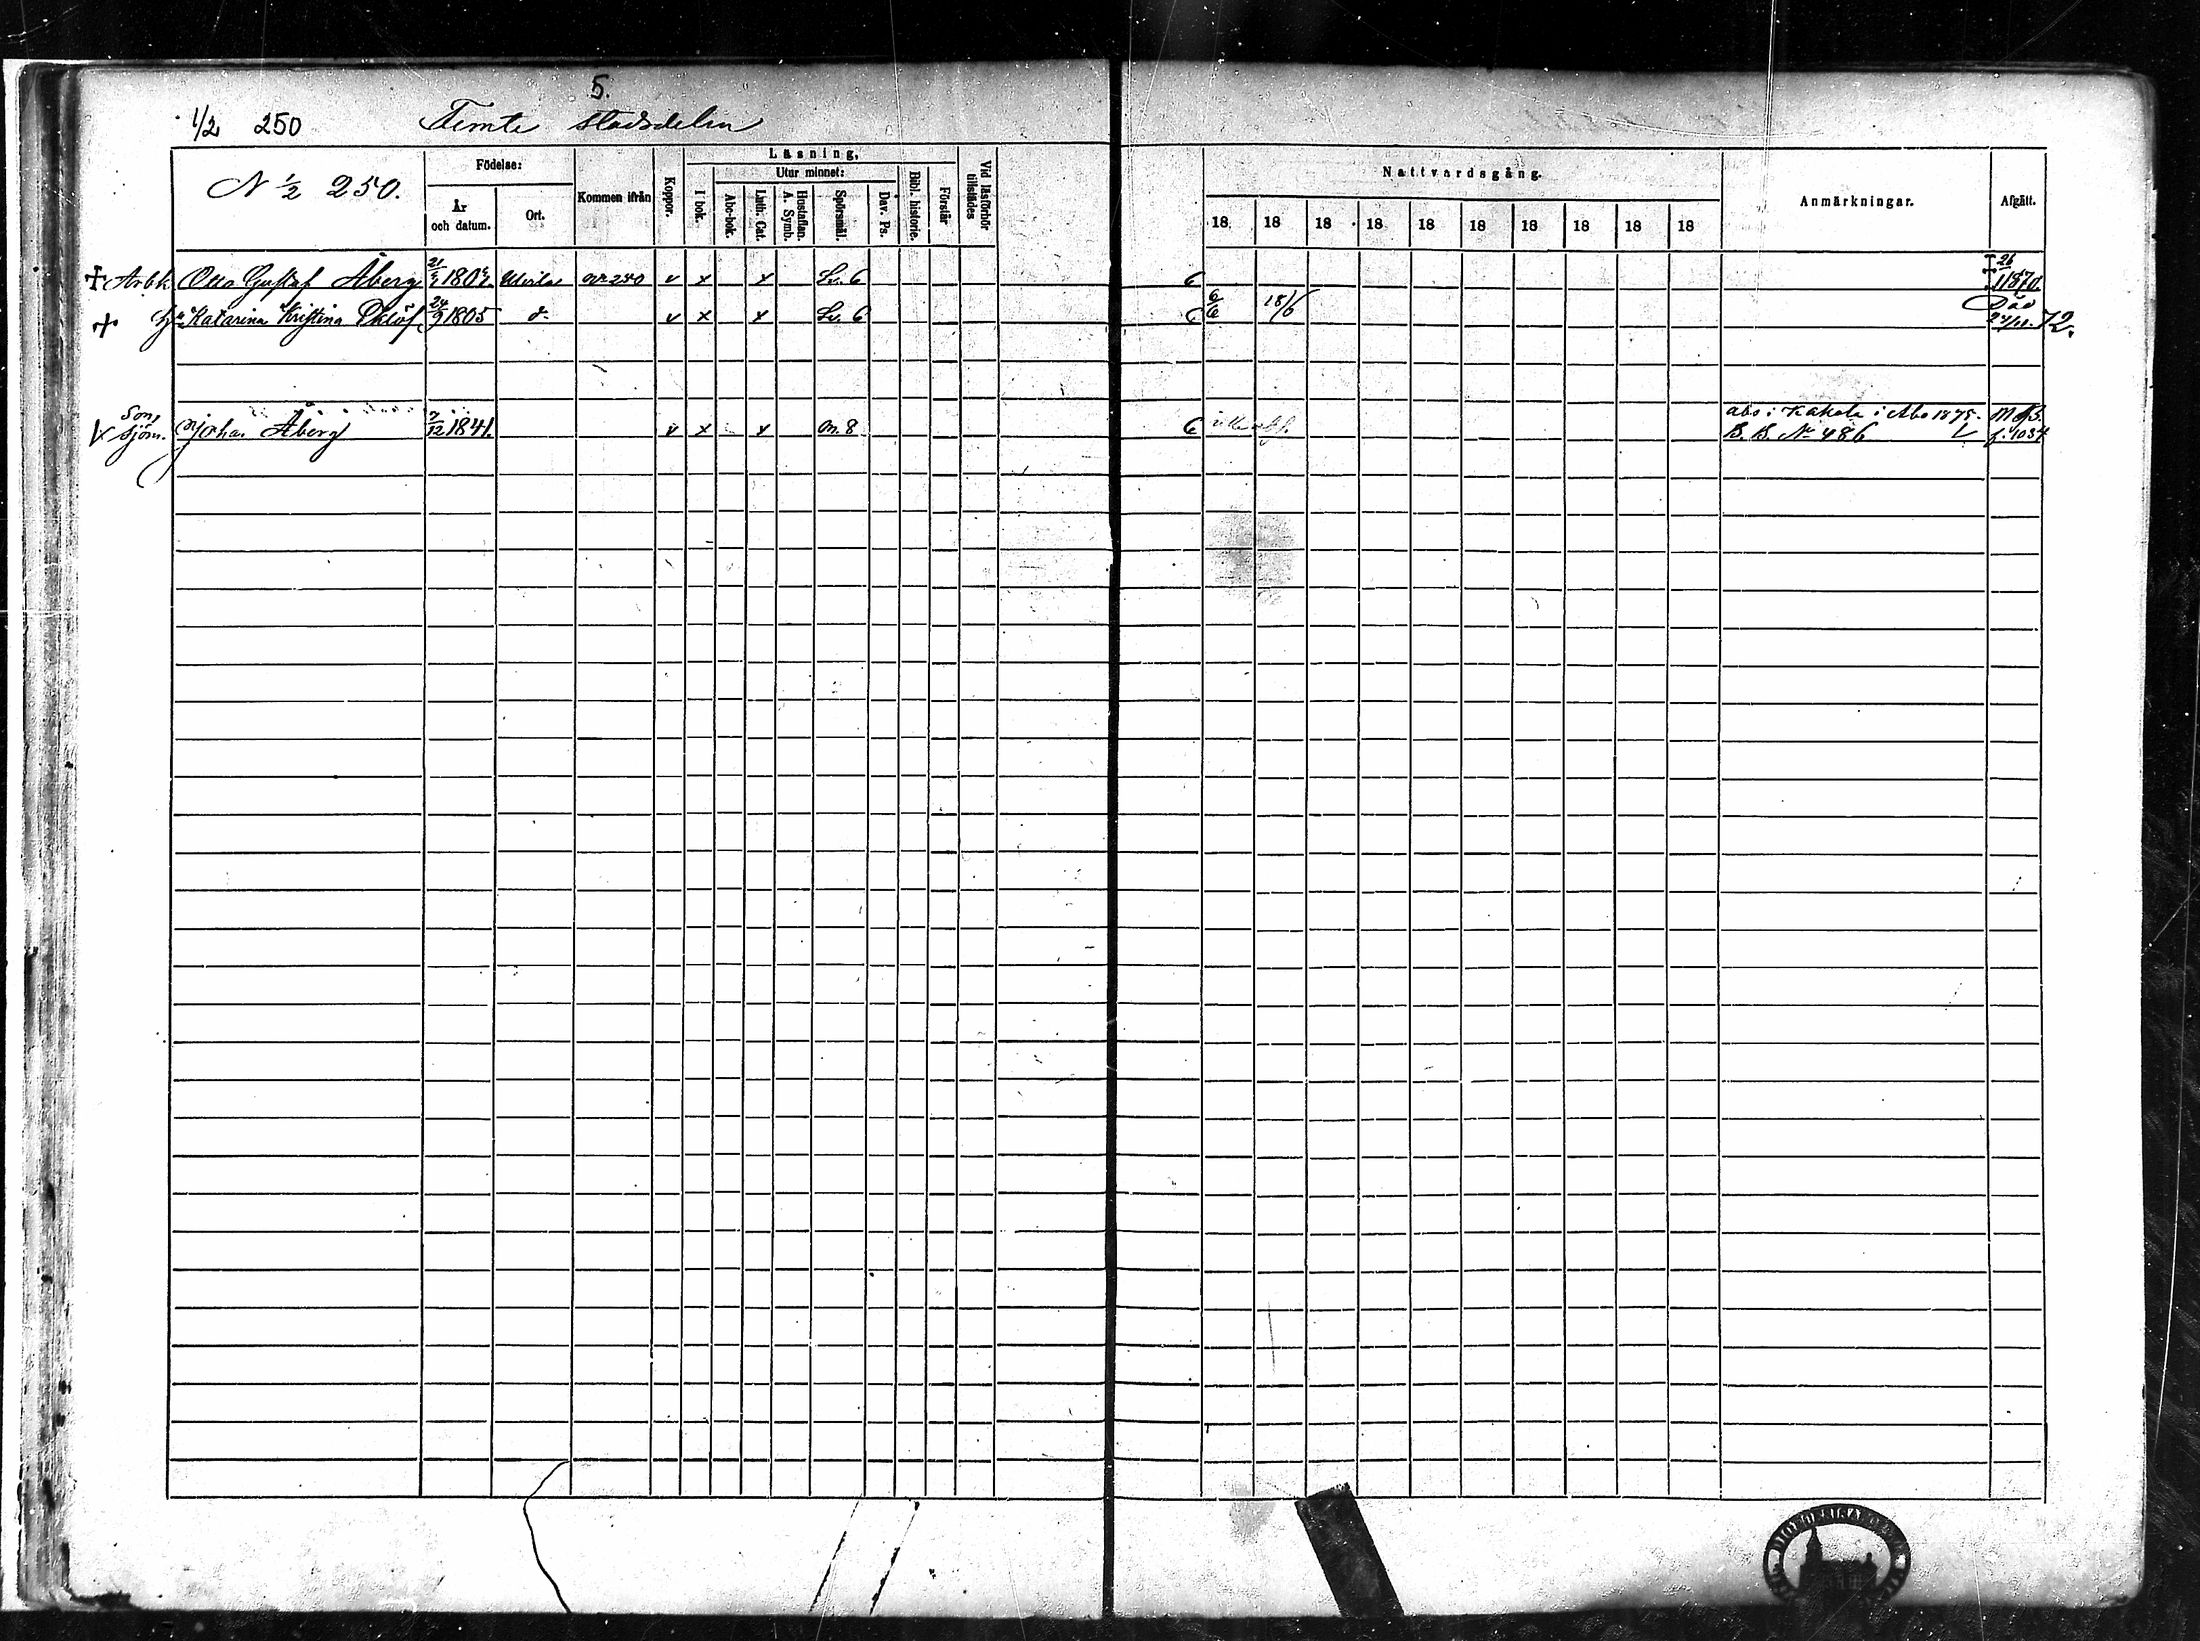 5.
1/2 250 Femte stadsdelen
N 1/2 250.
Födelse:
År och datum.
Ort.
Kommen ifrån
Koppor.
Läsning,
I bok.
Utur minnet:
Abc-bok.
Luth. Cat.
Hustaflan. A. Symb.
Spörsmål.
Dav. Ps.
Bibl. historie.
Förstår
Vid läsförhör tillstädes
Nattvardsgång.
18 18 18 18 18 18 18 18 18 18
Anmärkningar.
Afgått.
† Arbk. Otto Gustaf Åberg 180 v x x Lv. 6 6 † 26/1 1870.
† h. Katarina Kristina 24/9 1805 d:o v x x Lv. 6 6 6/6 18/6 Död 24/11. 72.
Son,
V Sjöm. Johan Åberg 7/12 1841. v x x On. 8 6 abs i Kakola i Åbo 1875. M.B.
B. B. No 486 f. 1034